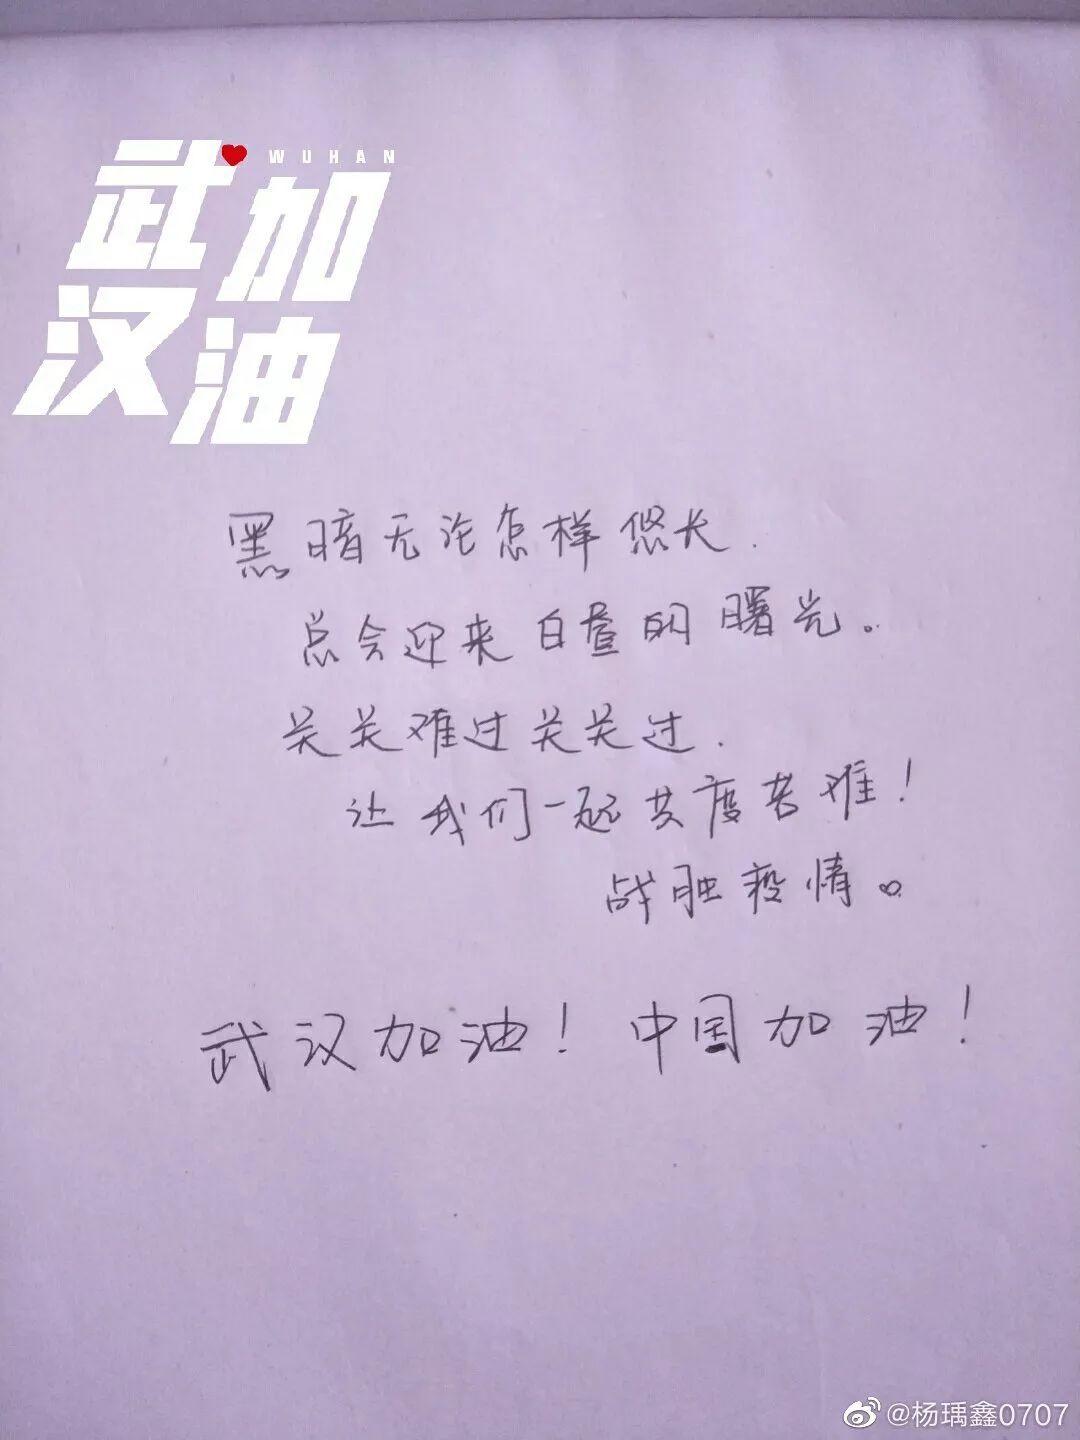 武加
WUHAN
汉油
黑暗无论怎样悠长.
总会迎来白昼的曙光。
关关难过关关过.
让我们一起共度苦难！
战胜疫情。
武汉加油！中国加油！
@杨瑀鑫0707